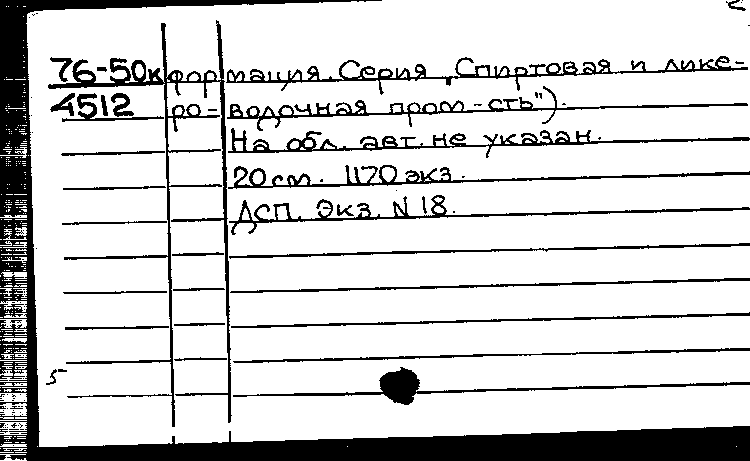 76-50к формация. Серия „Спиртовая и лике-
4512 ро-водочная пром-сть").
На обл. авт. не указан.
20 см. 1170 экз.
ДСП. Экз. N 18.
5